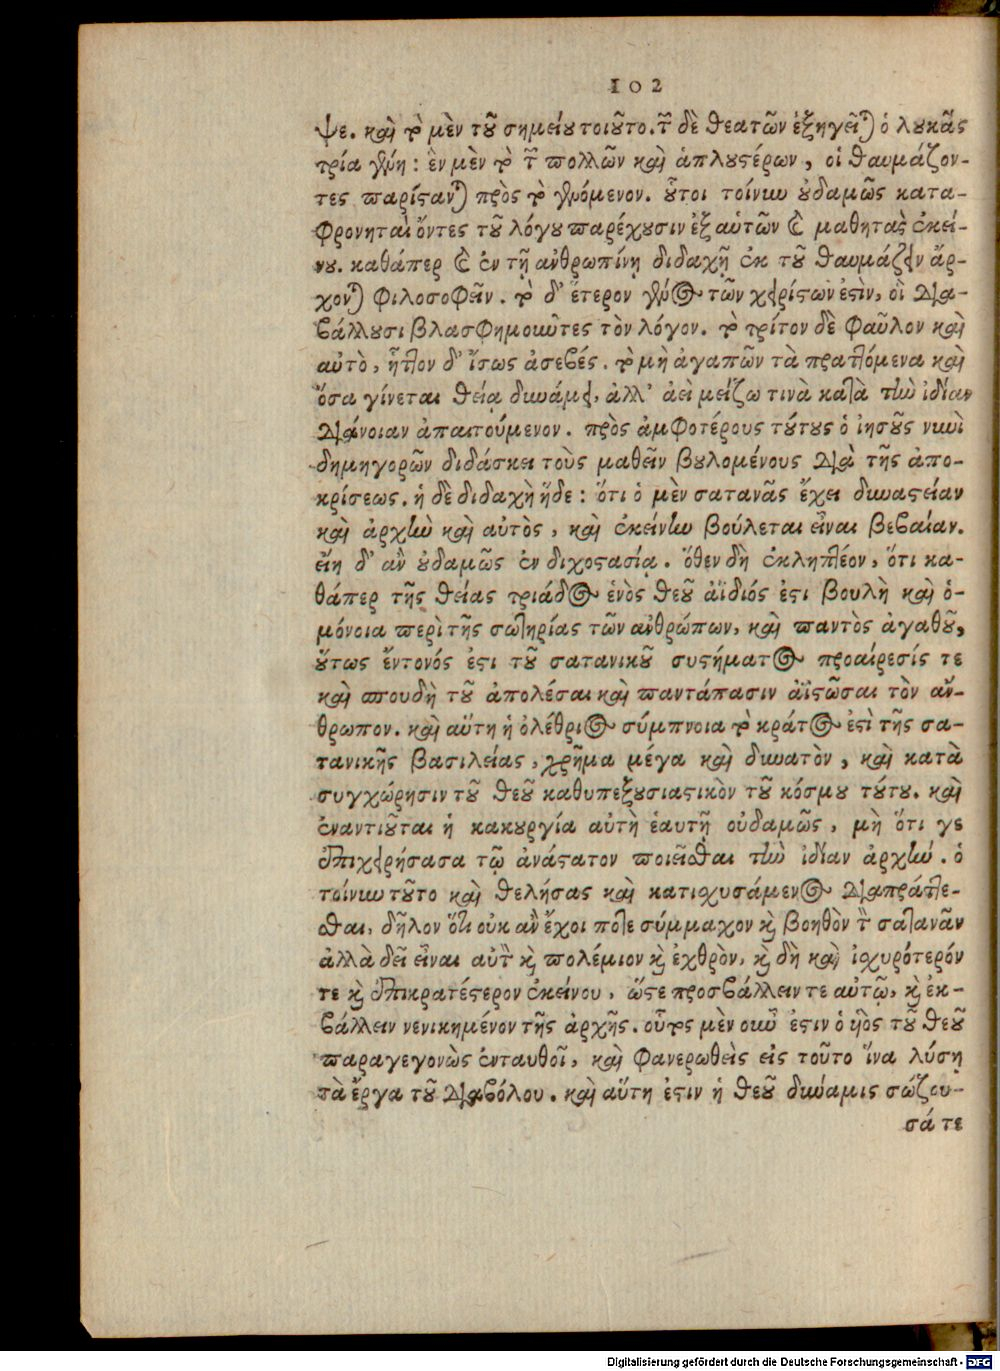 102
ψε. καὶ τὸ μὲν τοῦ σημείου τοιοῦτο. τῶν δὲ θεατῶν ἐξηγεῖται ὁ λουκᾶς
τρία γένη: ἓν μὲν τὸ τῶν πολλῶν καὶ ἁπλουστέρων, οἱ θαυμάζον-
τες παρίστανται πρὸς τὸ γενόμενον. οὗτοι τοίνυν οὐδαμῶς κατα-
φρονηταὶ ὄντες τοῦ λόγου παρέχουσιν ἐξ αὑτῶν καὶ μαθητὰς ἐκεί-
νου. καθάπερ καὶ ἐν τῇ ἀνθρωπίνῃ διδαχῇ ἐκ τοῦ θαυμάζειν ἄρ-
χονται φιλοσοφεῖν. τὸ δ' ἕτερον γένος τῶν χειρίστων ἐστὶν, οἳ δια-
βάλλουσι βλασφημοῦντες τὸν λόγον. τὸ τρίτον δὲ φαῦλον καὶ
αὐτὸ, ἧττον δ' ἴσως ἀσεβές. τὸ μὴ ἀγαπῶν τὰ πραττόμενα καὶ
ὅσα γίνεται θείᾳ δυνάμει, ἀλλ' ἀεὶ μείζω τινὰ κατὰ τὴν ἰδίαν
διάνοιαν ἀπαιτούμενον. πρὸς ἀμφοτέρους τούτους ὁ ἰησοῦς νυνὶ
δημηγορῶν διδάσκει τοὺς μαθεῖν βουλομένους διὰ τῆς ἀπο-
κρίσεως. ἡ δὲ διδαχὴ ἥδε: ὅτι ὁ μὲν σατανᾶς ἔχει δυναστείαν
καὶ ἀρχὴν καὶ αὐτὸς, καὶ ἐκείνην βούλεται εἶναι βεβαίαν.
εἴη δ' ἂν οὐδαμῶς ἐν διχοστασίᾳ. ὅθεν δὴ ἐκληπτέον, ὅτι κα-
θάπερ τῆς θείας τριάδος ἑνὸς θεοῦ ἀΐδιός ἐστι βουλὴ καὶ ὁ-
μόνοια περὶ τῆς σωτηρίας τῶν ἀνθρώπων, καὶ παντὸς ἀγαθοῦ,
οὕτως ἔντονός ἐστι τοῦ σατανικοῦ συστήματος προαίρεσίς τε
καὶ σπουδὴ τοῦ ἀπολέσαι καὶ παντάπασιν ἀϊστῶσαι τὸν ἄν-
θρωπον. καὶ αὕτη ἡ ὀλέθριος σύμπνοια τὸ κράτος ἐστὶ τῆς σα-
τανικῆς βασιλείας, χρῆμα μέγα καὶ δυνατὸν, καὶ κατὰ
συγχώρησιν τοῦ θεοῦ καθυπεξουσιαστικὸν τοῦ κόσμου τούτου. καὶ
ἐναντιοῦται ἡ κακουργία αὐτὴ ἑαυτῇ οὐδαμῶς, μὴ ὅτι γε
ἐπιχειρήσασα τῷ ἀνάστατον ποιεῖσθαι τὴν ἰδίαν ἀρχήν. ὁ
τοίνυν τοῦτο καὶ θελήσας καὶ κατισχυσάμενος διαπράττε-
σθαι, δῆλον ὅτι οὐκ ἂν ἔχοι ποτε σύμμαχον καὶ βοηθὸν τὸν σατανᾶν
ἀλλὰ δεῖ εἶναι αὐτὸν καὶ πολέμιον καὶ ἐχθρὸν, καὶ δὴ καὶ ἰσχυρότερόν
τε καὶ ἐπικρατέστερον ἐκείνου, ὥστε προσβάλλειν τε αὐτῷ, καὶ ἐκ-
βάλλειν νενικημένον τῆς ἀρχῆς. οὗτος μὲν οὖν ἐστιν ὁ υἱὸς τοῦ θεοῦ
παραγεγονὼς ἐνταυθοῖ, καὶ φανερωθεὶς εἰς τοῦτο ἵνα λύσῃ
τὰ ἔργα τοῦ διαβόλου. καὶ αὕτη ἐστιν ἡ θεοῦ δύναμις σώζου-
σά τε
Digitalisierung gefördert durch die Deutsche Forschungsgemeinschaft - DFG